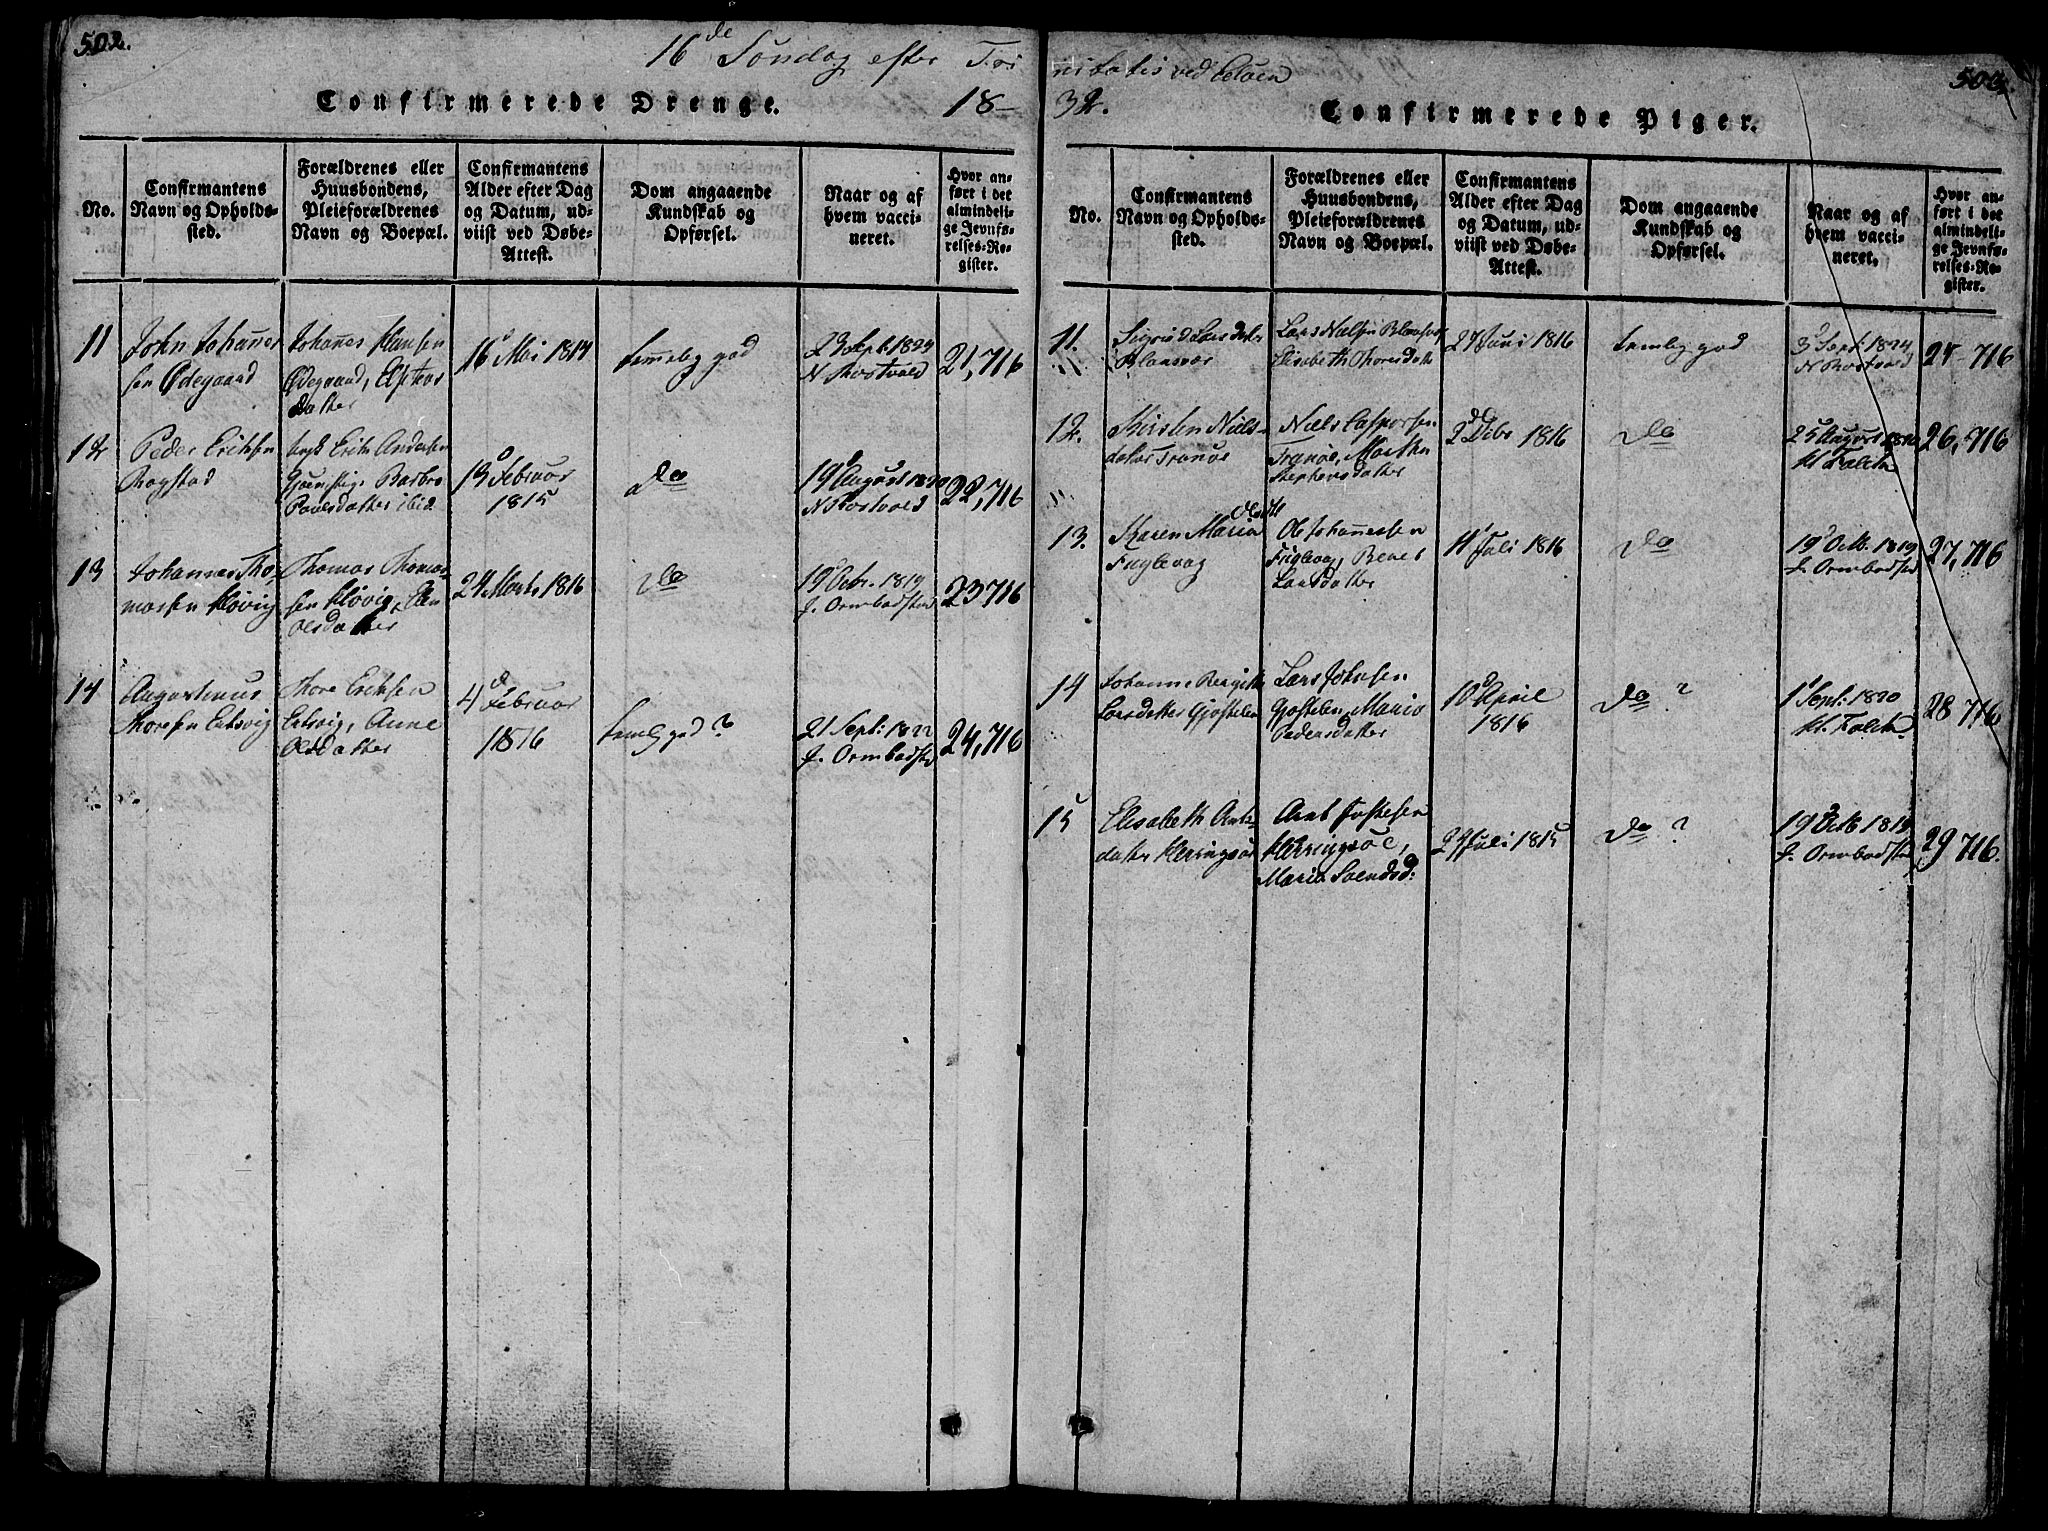 502.
16de Søndag efter Tri
Confirmerede Drenge.
18-
No.
Confirmantens
Navn og Opholds-
sted.
Forældrenes eller
Huusbondens,
Pleieforældrenes
Navn og Boepæl.
Confirmantens
Alder efter Dag
og Datum, ud-
viist ved Døbe-
Attest.
Dom angaaende
Kundskab og
Opførsel.
Naar og af
hvem vacci-
neret.
Hvor an-
ført i det
almindeli-
ge Jevnfø-
relses-Re-
gister.
11
John Johannes
sen Ødegaard
Johannes Hansen
Ødegaard,
datter
16 Mai 1814
temelig god
23 Sept. 1824
N Rostvold
21,716
12
Peder Erichsen
Rogstad
Erik Andersen
Barbro
Paulsdatter ibid
13 Februar
1815
do
19 August 1820
N Rostvold
22,716
13
Johannes Tho-
massen Høvig
Thomas Thomas-
sen Høvig,
Olsdatter
24 Marts 1816
do
19 Octr. 1819
J. Ormbodsted
23 716
14
Augustinus
Thoresen
Thore Erichsen
Anne
Olsdatter
4de Februar
1816
temlig god?
21 Sept: 1822
J. Ormbodsted
24,716
nitatis ved
32.
Confirmerede Piger.
No.
Confirmantens
Navn og Opholds-
sted.
Forældrenes eller
Huusbondens,
Pleieforældrenes
Navn og Boepæl.
Confirmantens
Alder efter Dag
og Datum, ud-
viist ved Døbe-
Attest.
Dom angaaende
Kundskab og
Opførsel.
Naar og af
hvem vacci-
neret.
Hvor an-
ført i det
almindeli-
ge Jevnfø-
relses-Re-
gister.
11.
Sigrid Larsdatr
Lars
Elisabeth Thoresdatt
27 Juni 1816
temelig god
3 Sept: 1824
N Rostvold
25-716
12.
Kirsten Niels-
datter Tranøe
Niels Caspersen
Tranøe, Marthe
Stephensdatter
2d Debr 1816
do
25 August
Kl Falch
26,716
13.
Karen Maria Olsdt
Fuglevog
Ole Johannessen
Fuglevog,
Larsdatter
11 Juli 1816
do
19 Octb. 1819
J. Ormbodsted
27,716
14
Johanne Bergithe
Larsdatter Gjøstelen
Lars Johnsen
Gjøstelen, Maria
Pedersdatter
10 April
1816
do ?
1 Sept: 1820
Kl. Falch
28 716
15
Elisabeth Arnts-
datter Herringsøe
Arnt Jostesen
Herringsøe,
Maria Svendsd:
27 Juli 1815
do ?
19 Octb 1819
J. Ormbodsted
29 716.